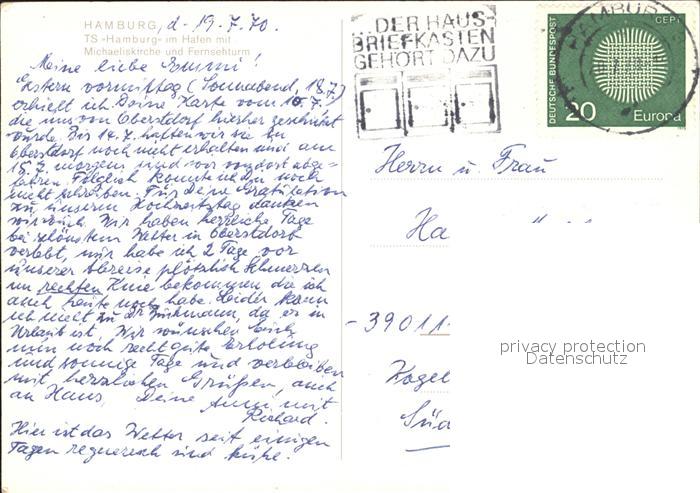 HAMBURG, d. 19.7.70.
TS »Hamburg« im Hafen mit
Michaeliskirche und Fernsehturm
Meine liebe Emmi!
Gestern vormittag (Sonnabend, 18.7.)
erhielt ich Deine Karte vom 10.7.
die uns von Oberstdorf hierher geschickt
wurde. Bis 14.7. hatten wir sie in
Oberstdorf noch nicht erhalten und am
15.7. morgens sind wir von dort abge-
fahren. Folglich konnte ich Dir noch
nicht schreiben. Für Deine Gratulation
zu unserem Hochzeitstag danken
wir Euch. Wir haben herrliche Tage
bei schönstem Wetter in Oberstdorf
verlebt, nur habe ich 2 Tage vor
unserer Abreise plötzlich Schmerzen
im rechten Knie bekommen die ich
auch heute noch habe. Leider kann
ich nicht zu Dr. da er in
Urlaub ist. Wir wünschen Euch
nun noch recht gute Erholung
und sonnige Tage und verbleiben
mit herzlichen Grüßen, auch
an Hans, Deine Anni mit
Richard.
Hier ist das Wetter seit einigen
Tagen regnerisch und kühl.
DER HAUS-
BRIEFKASTEN
GEHÖRT DAZU
HAMBURG
CEPT
DEUTSCHE BUNDESPOST
20 Europa
Herrn u. Frau
Ha
-39011
privacy protection
Datenschutz
Vogel
Süd